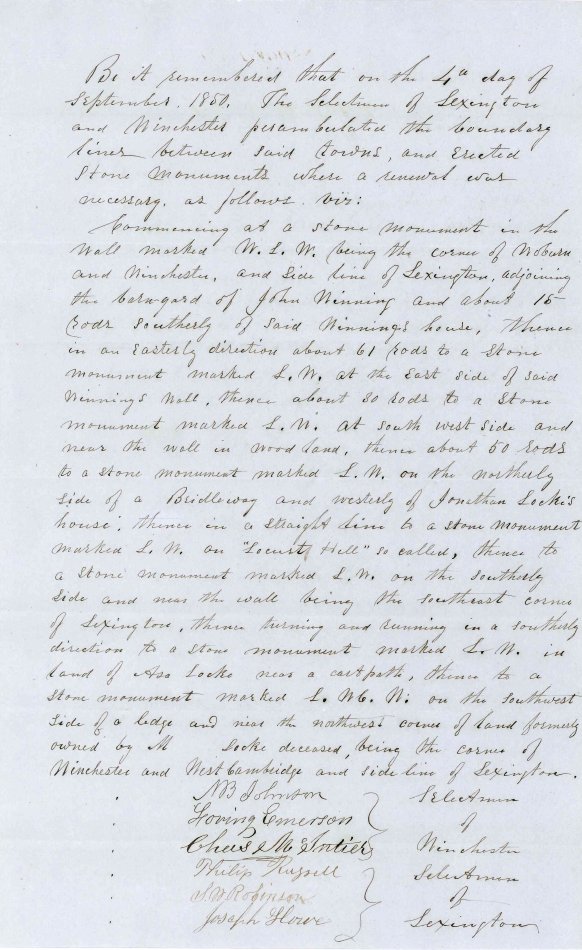 Be it remembered that on the 4th day of
September. 1850. The Selectmen of Lexington
and Winchester perambulated the boundary
lines between said towns, and erected
stone monuments where a renewal was
necessary. as follows. viz:
Commencing at a stone monument in the
wall marked W. L. W. being the corner of Woburn
and Winchester, and side line of Lexington, adjoining
the barnyard of John Winning and about 15
rods southerly of said Winnings house, thence
in an easterly direction about 61 rods to a stone
monument marked L. W. at the east side of said
Winnings wall, thence about 80 rods to a stone
monument marked L. W. at south west side and
near the wall in wood land, thence about 50 rods
to a stone monument marked L. W. on the northerly
side of a Bridleway and westerly of Jonathan Locke's
house; thence in a straight line to a stone monument
marked L. W. on "Locust Hill" so called, thence to
a stone monument marked L. W. on the southerly
side and near the wall being the southeast corner
of Lexington, thence turning and running in a southerly
direction to a stone monument marked L. W. in
land of Asa Locke near a cartpath, thence to a
stone monument marked L. W.C. W. on the southwest
side of a ledge and near the northwest corner of land formerly
owned by M Locke deceased, being the corner of
Winchester and West Cambridge and side line of Lexington.
N B Johnson Selectmen
Loving Emerson of
Chas McIntier Winchester
Philip Russell Selectmen
S. W. Robinson of
Joseph Howe Lexington